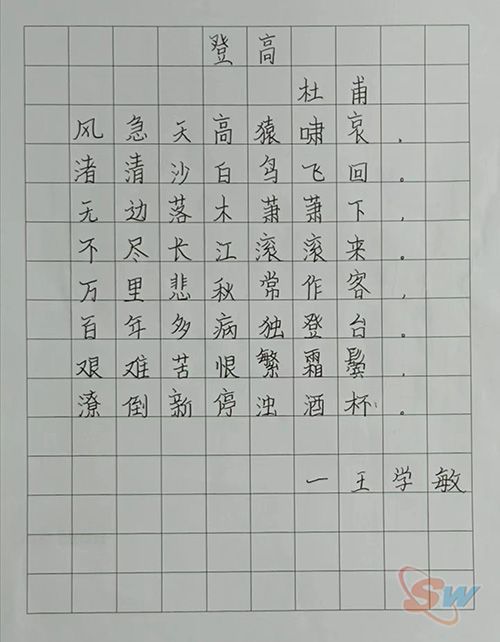 登高
杜甫
风急天高猿啸哀，
渚清沙白鸟飞回。
无边落木萧萧下，
不尽长江滚滚来。
万里悲秋常作客，
百年多病独登台。
艰难苦恨繁霜鬓，
潦倒新停浊酒杯。
一王学敏
SW